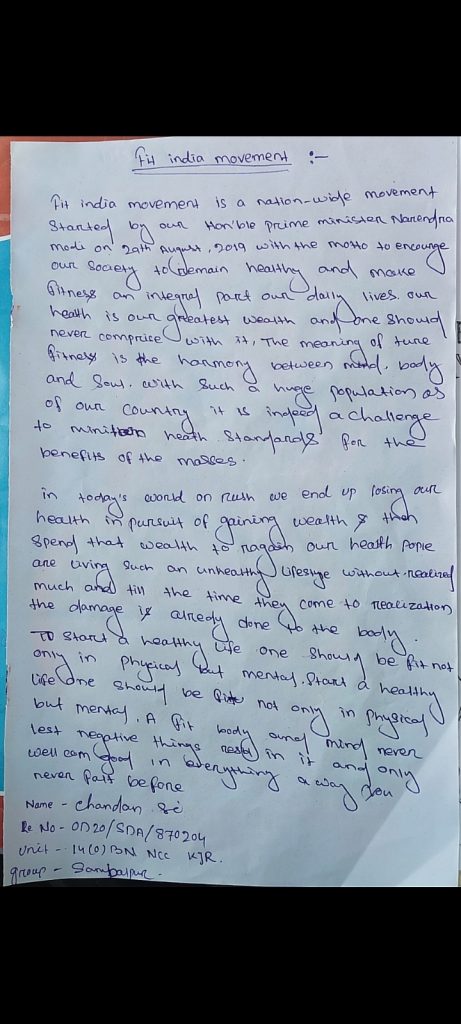 Fit india movement :-
Fit india movement is a nation-wide movement
Started by our Hon'ble prime minister Narendra
modi on 29th August, 2019 with the motto to encourge
our Society to remain healthy and make
fitness an integral part our daily lives. our
health is our greatest wealth and one should
never comprise with it, The meaning of ture
fitness is the harmony between mind, body
and Soul. with Such a huge population as
of our country it is indeed a challenge
to heath Standards for the
benefits of the masses.
in today's world on rush we end up losing our
health in pursuit of gaining wealth & then
Spend that wealth to our health
are living Such an unhealthy without realized
much and till the time they come to realization
the damage is alredy done to the body.
To Start a healthy life one should be fit not
only in physical but mental. Start a healthy
life one should be fit not only in physical
but mental. A fit body and mind never
lest negative things in it and only
well good in everything a way you
never before
Name - chandan
Re No - OD20/SDA/870204
Unit - 14(O) BN NCC KJR.
group - Sambalpur.